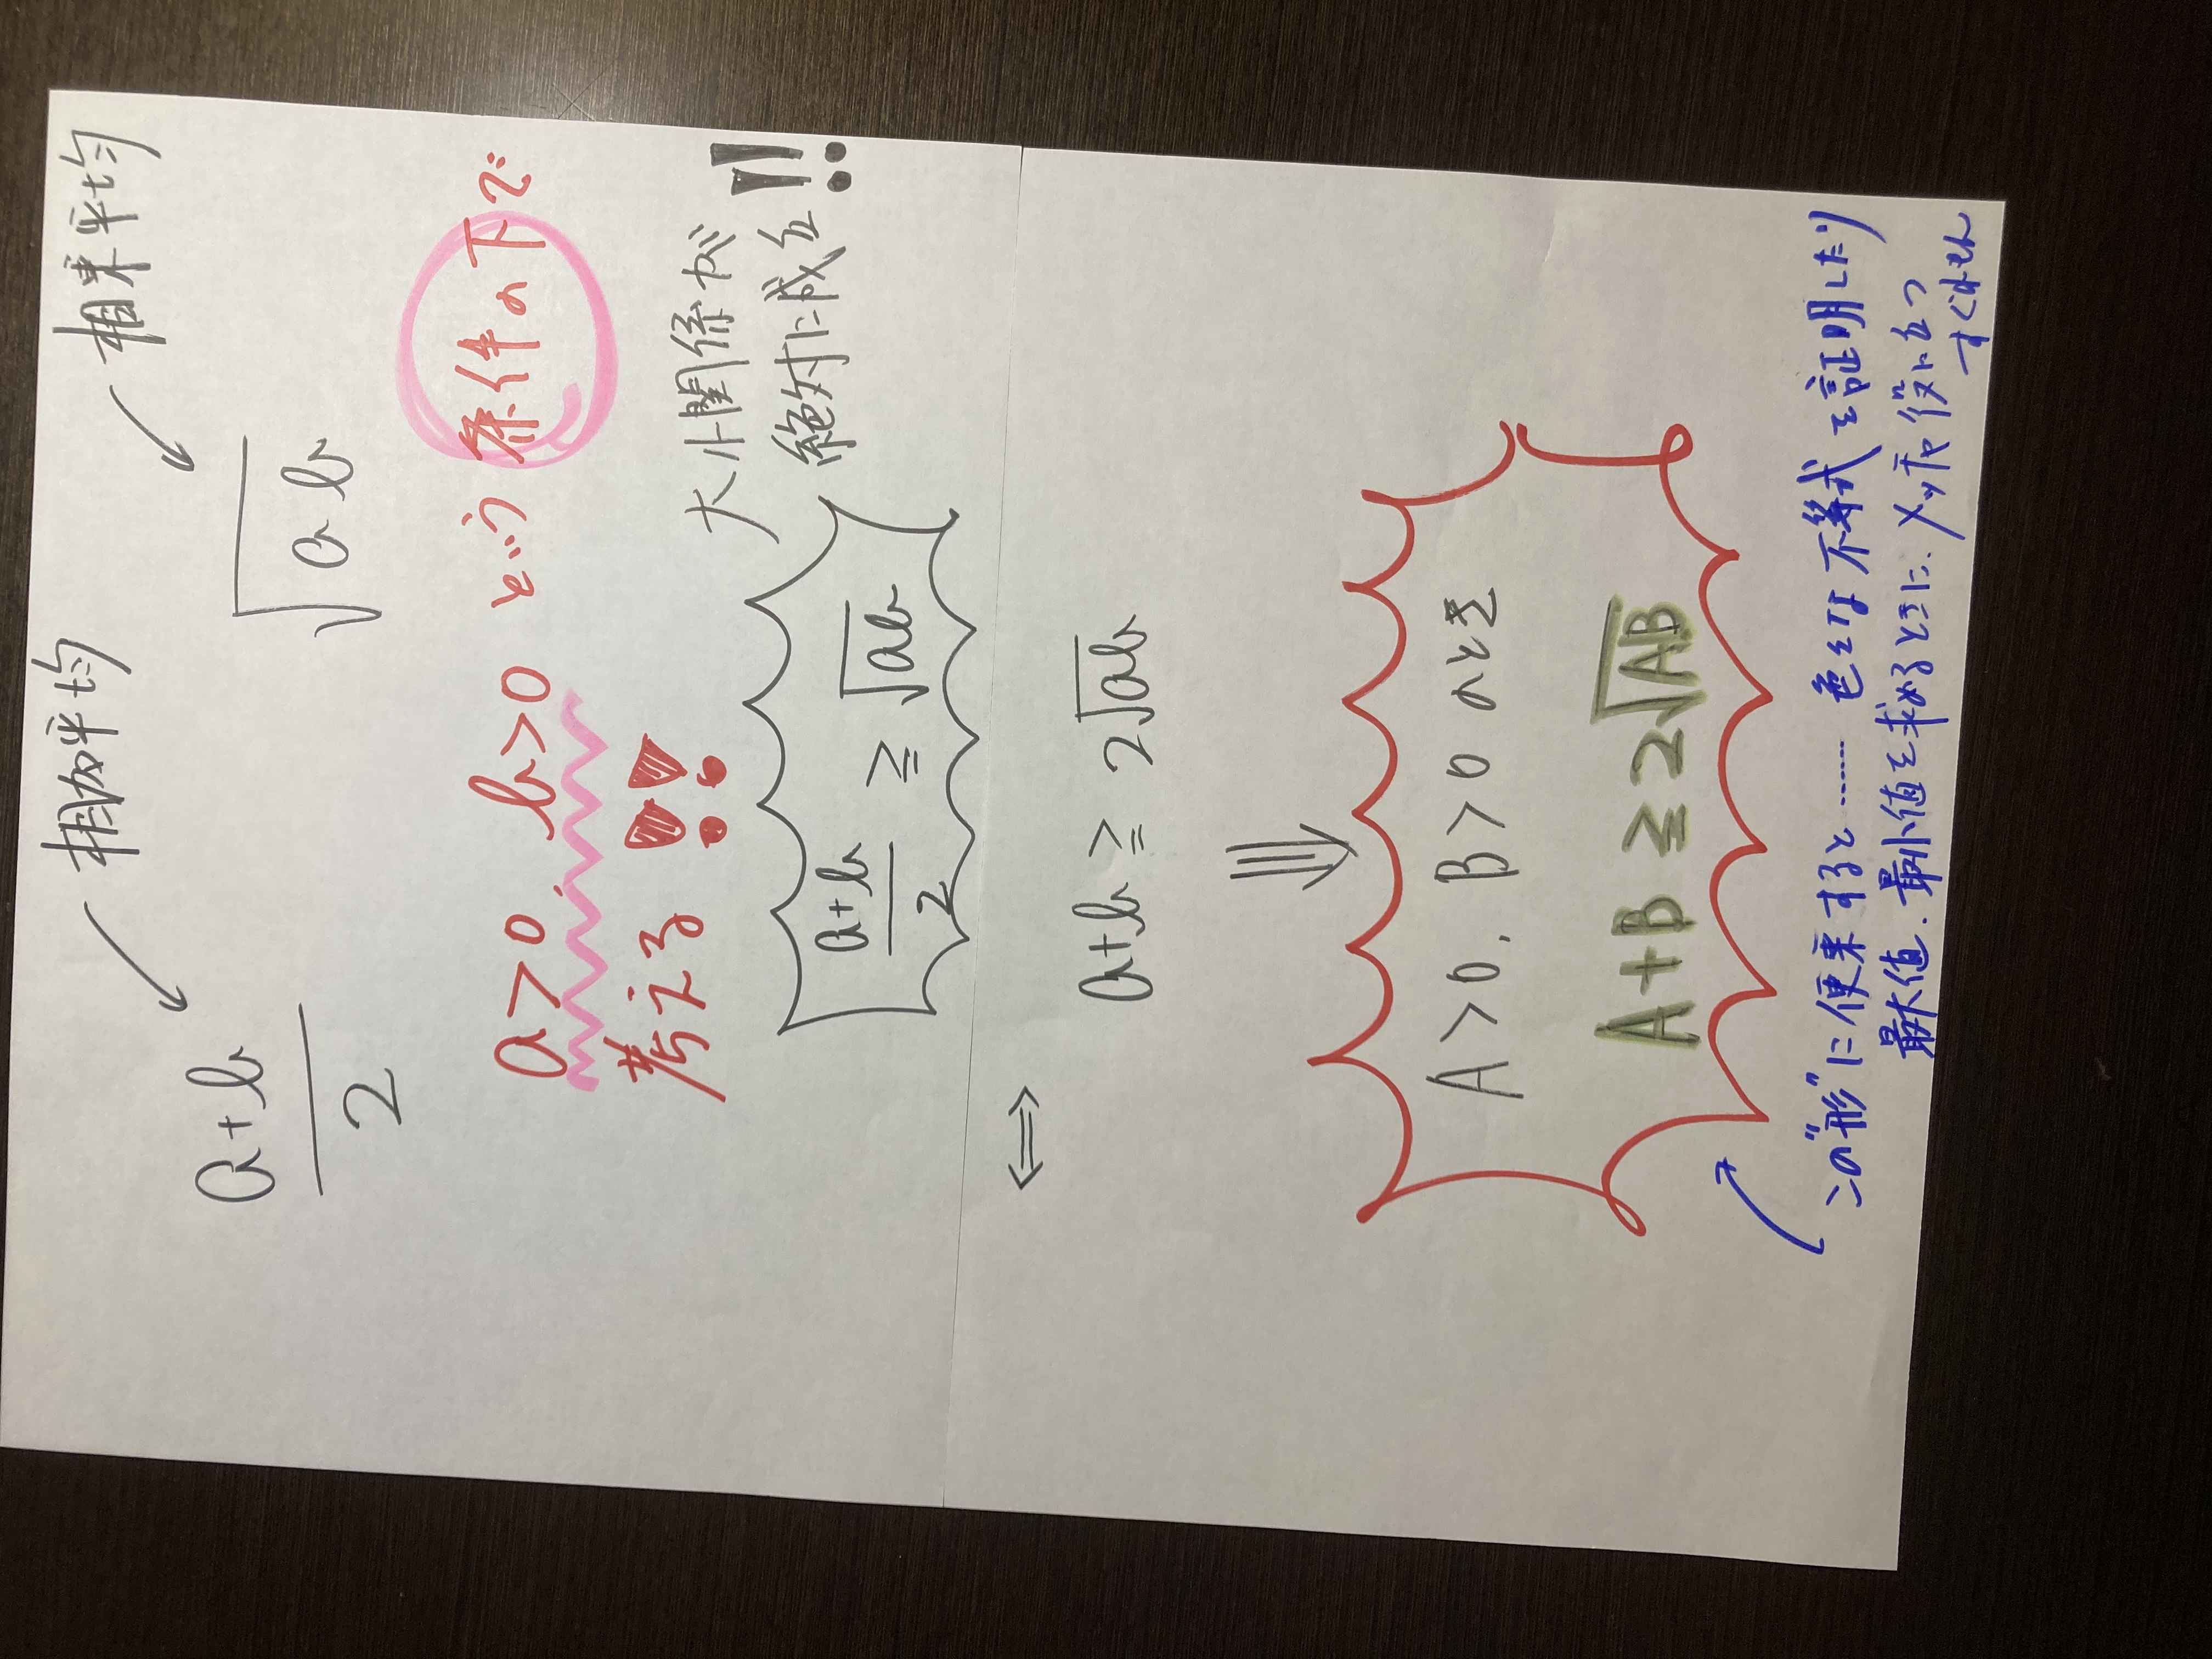 相加平均 相乗平均
a+b/2 √ab
a>0, b>0 という 条件の下で
考える!!
大小関係が
a+b/2 ≧ √ab 絶対に成立!!
⇔ a+b ≧ 2√ab
⇓
A>0, B>0 のとき
A+B ≧ 2√AB
この"形"に便乗すると…… 色々な不等式を証明したり
最大値、最小値を求めるときに、メッチャ役に立つ